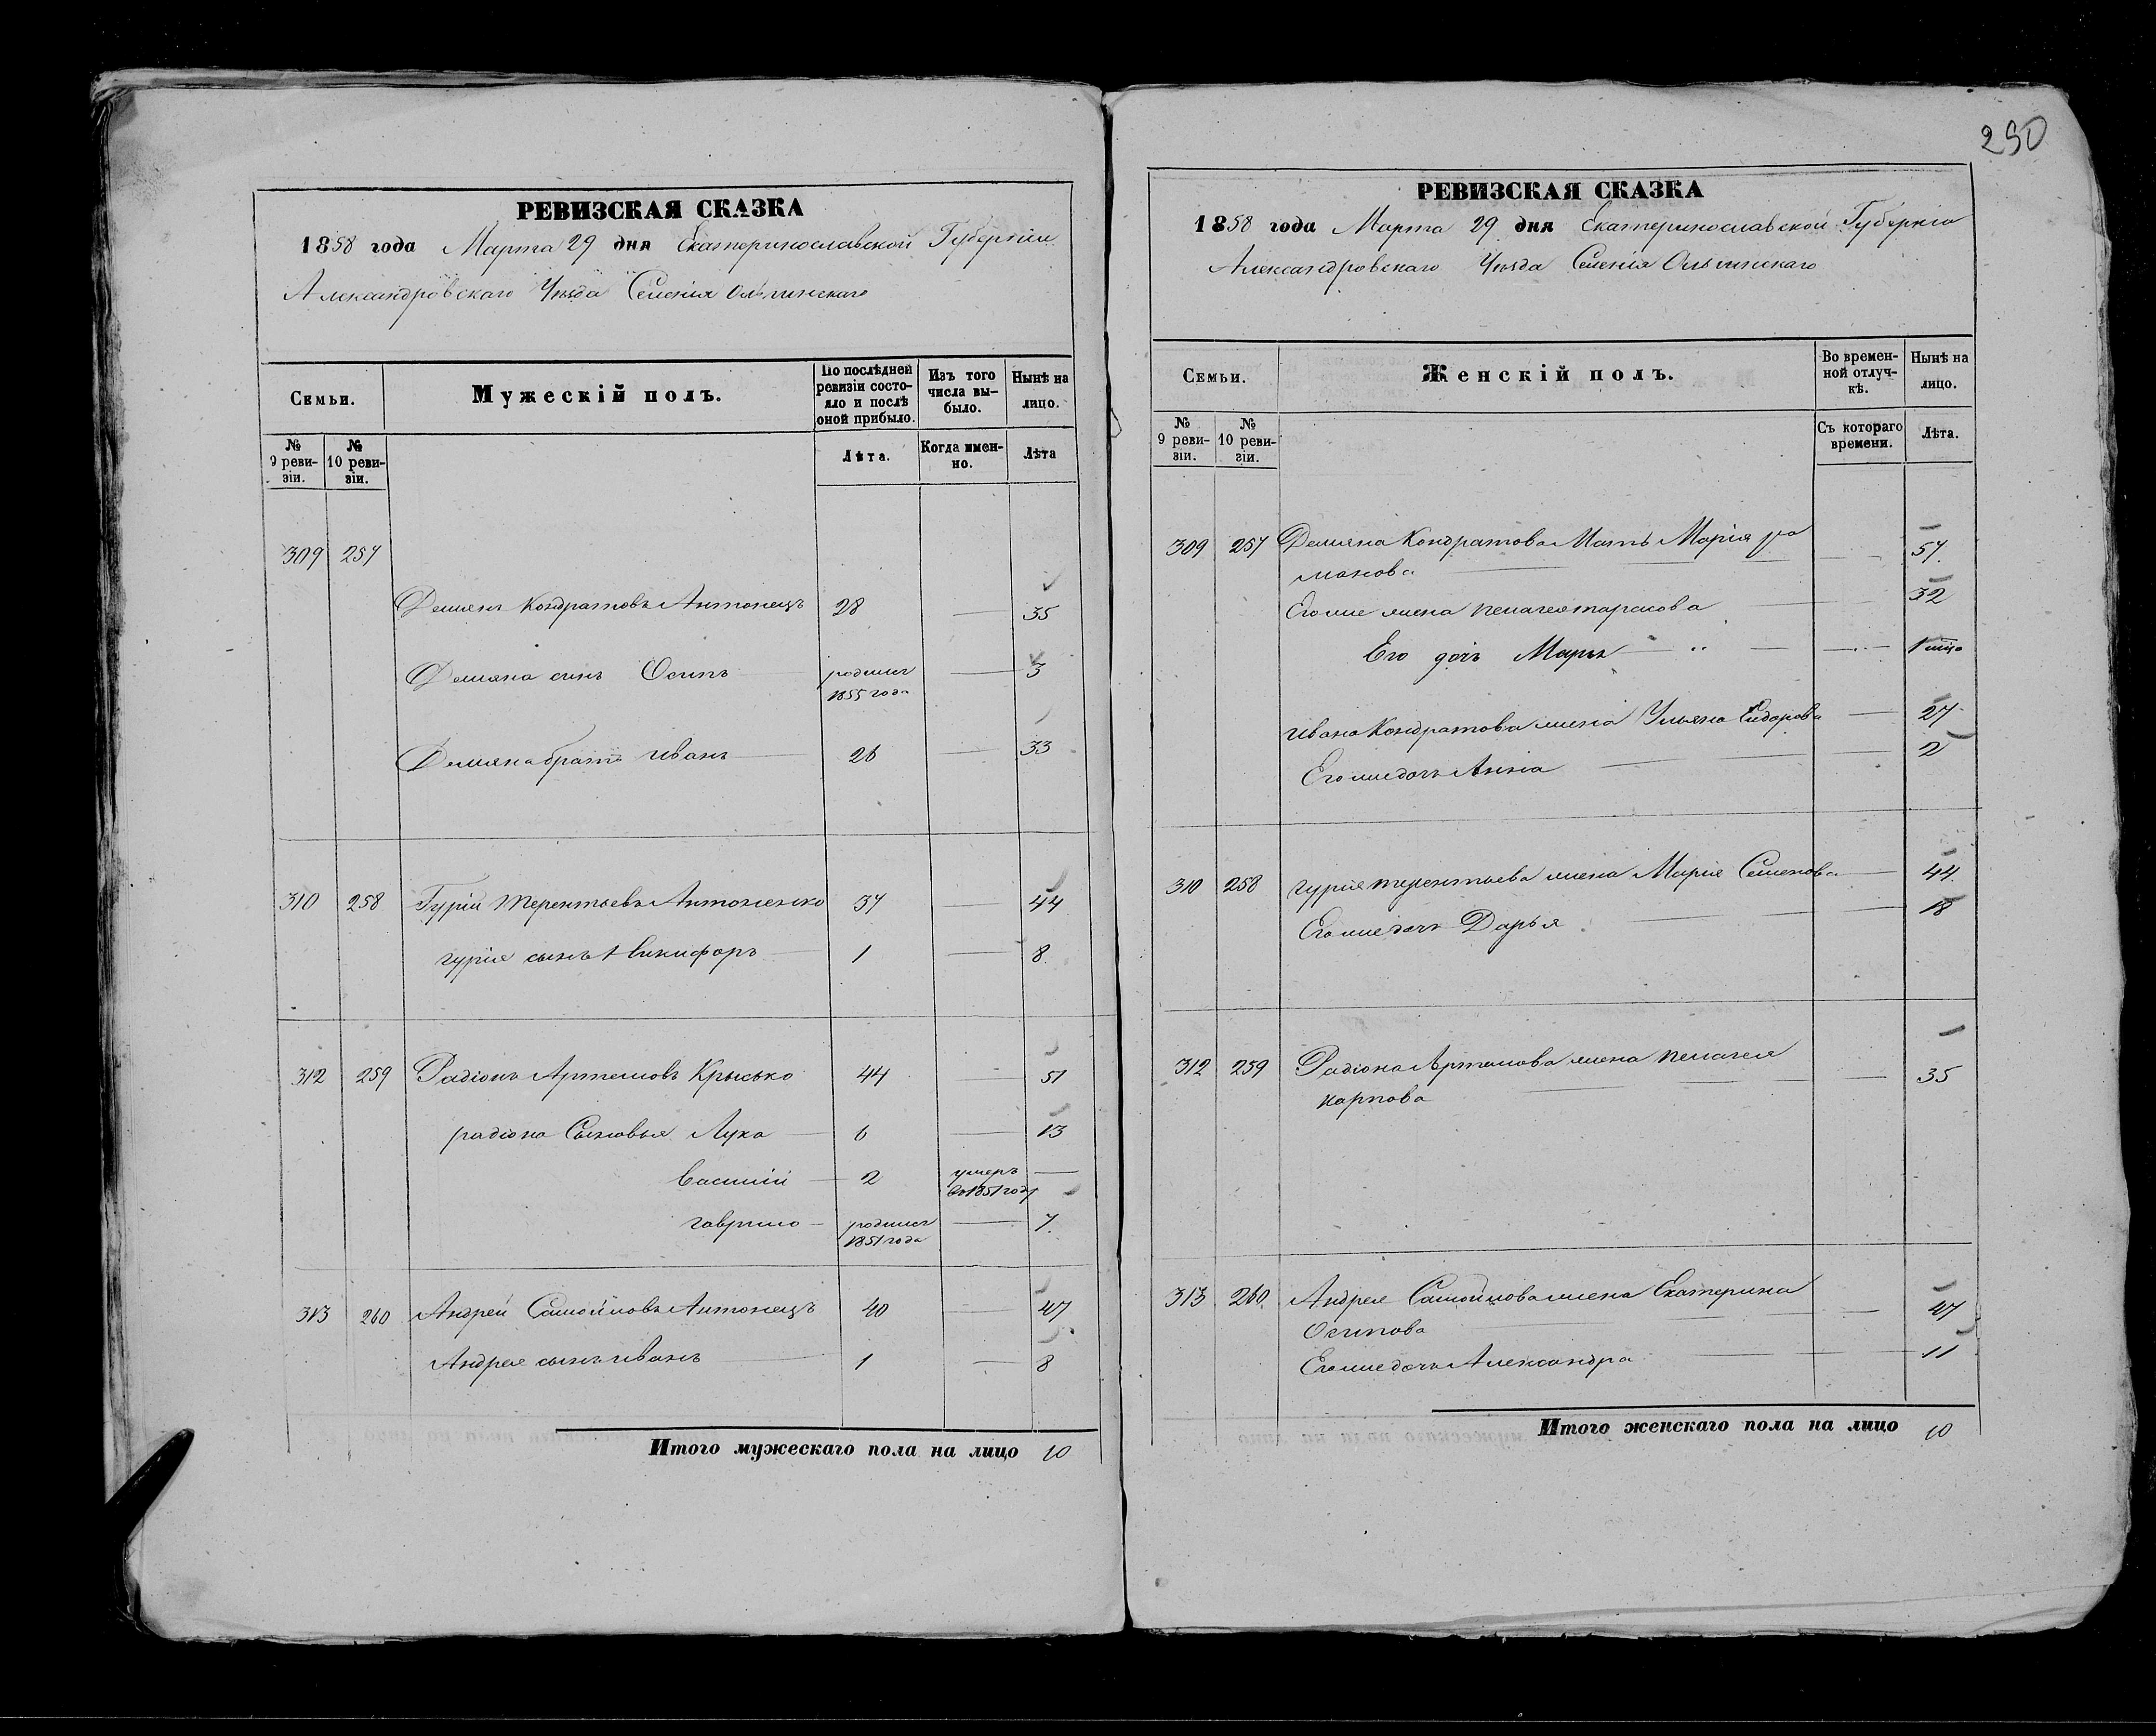 РЕВИЗСКАЯ СКАЗКА
1858 года Марта 29 дня Екатеринославской Губерніи
Александровскаго Уѣзда Селенія Ольгинскаго
Семьи.
Мужескій полъ.
По послѣдней ревизіи состояло и послѣ оной прибыло.
Изъ того числа выбыло.
Нынѣ на лицо.
№ 9 ревизіи.
№ 10 ревизіи.
Лѣта.
Когда именно.
Лѣта
309 257
Демянъ Кондратовъ Антонецъ 28 — 35
Демяна синъ Осипъ родился 1855 года — 3
Демяна братъ иванъ 26 — 33
310 258 Гурій Терентьевъ Антоненко 37 — 44
гурія сынъ Никифоръ 1 — 8
312 259 Радіонъ Артемовъ Крысько 44 — 51
радіона Сыновья Лука 6 — 13
василій 2 умеръ во 1851 году —
гаврило родился 1851 года — 7
313 260 Андрей Самойловъ Антонецъ 40 — 47
Андрея сынъ иванъ 1 — 8
Итого мужескаго пола на лицо 10
290
РЕВИЗСКАЯ СКАЗКА
1858 года Марта 29 дня Екатеринославской Губерніи
Александровскаго Уѣзда Селенія Ольгинскаго
Семьи.
Женскій полъ.
Во временной отлучкѣ.
Нынѣ на лицо.
№ 9 ревизіи.
№ 10 ревизіи.
Съ котораго времени.
Лѣта.
309 257 Демяна Кондратова Мать Марія ро
манова — 57
Его же жена пелагея тарасова 32
Его дочь Марья —
ивана Кондратова жена Ульяна Сидорова — 27
Его же дочь Анна — 2
310 258 гурия терентьева жена Мария Семенова — 44
Его же дочь Дарья — 18
312 259 Радіона Артемова жена пелагея
карпова — 35
313 260 Андрея Самойлова жена Екатерина
Осипова — 47
Его же дочь Александра — 11
Итого женскаго пола на лицо 10